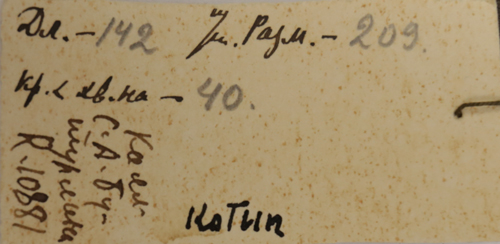 Дл. - 142 Ш. Разм. - 209.
Кр. < хв. на - 40.
Колл
С. А. Бу-
турлина
R-10881
котип